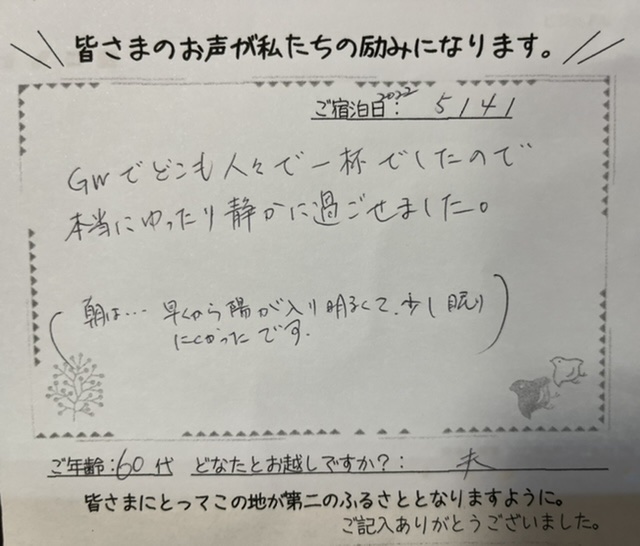 皆さまのお声が私たちの励みになります。
ご宿泊日: 2022 5/4
GWでどこも人々で一杯でしたので
本当にゆったり静かに過ごせました。
(朝は… 早くから陽が入り明るくて、少し眠り
にくかったです.)
ご年齢:60代 どなたとお越しですか?: 夫
皆さまにとってこの地が第二のふるさととなりますように。
ご記入ありがとうございました。